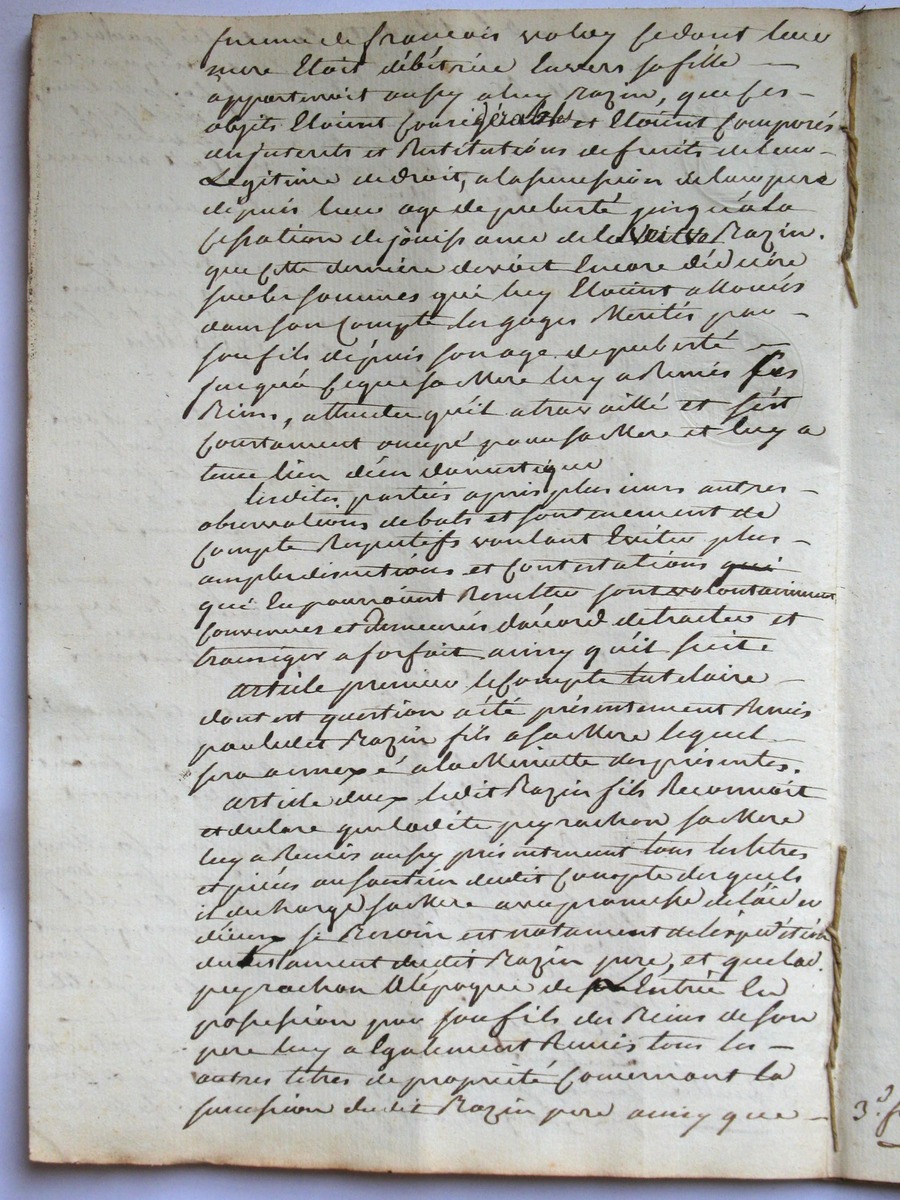 femme de francois valay et dont leur
mere Etoit débitrice Envers sa fille —
appartenoit aussy a luy Razin, que ces —
objets Etoient Considérables et Etoient Composés
en jnterets et Restitutions de fruits de leur —
Legitime de droit, a la succession de leur pere
depuis leur age de puberté jusqu'a la
cessation de jouissance de la veuve Razin.
que cette derniere devoit Encore déduire
sur les sommes qui luy Etoient allouées
dans son Compte les gages Mérités par —
son fils depuis son age de puberté —
jusqu'a ce que sa Mere luy a Remis ses
Biens, attendu qu'il a travaillé et s'est
Constament occupé pour sa Mere et luy a
tenu lieu d'un domestique
lesdites parties apres plusieurs autres —
observations debats et soutenement de
Compte Respectifs voulant Eviter plus —
amples discutions et Contestations qui
qui En pourroient Resulter sont volontairement
Convenues et Demeurées d'accord de traiter et
transiger a forfait ainsy qu'il suit.
article premier le Compte tutelaire —
dont est question a été présentement Remis
par ledit Razin fils a sa Mere lequel —
sera annexé a la Minutte des présentes.
article deux ledit Razin fils Reconnoit
et declare que ladite peyrachon sa Mere
luy a Remis aussy présentement tous les titres
et pieces au soutien dudit Compte desquels
il decharge sa Mere avec promesse de l'aider
d'iceux se Besoin est notament de l'expédition
du testament dudit Razin pere, et que lad.
peyrachon A l'epoque de l'Entrée En
possession par son fils des Biens de son
pere luy a Egalement Remis tous les —
autres titres de proprieté Concernant la
succession dudit Razin pere ainsy que —
3.e